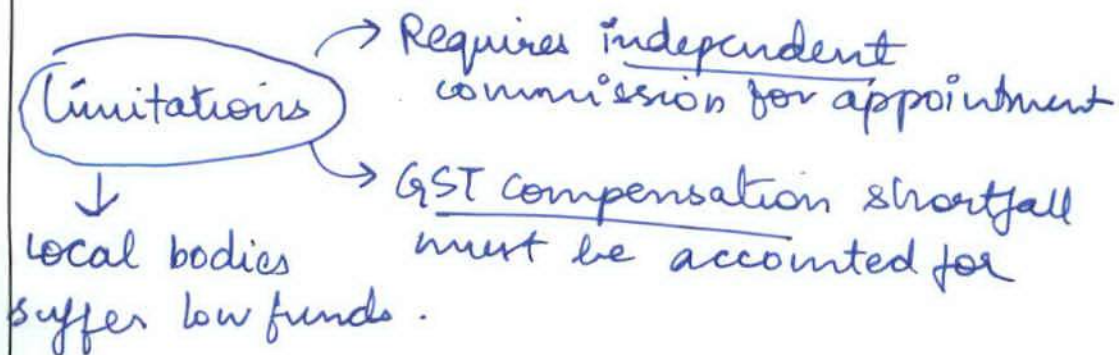 Limitations
Requires independent
commission for appointment
GST compensation shortfall
must be accounted for
Local bodies
suffer low funds.